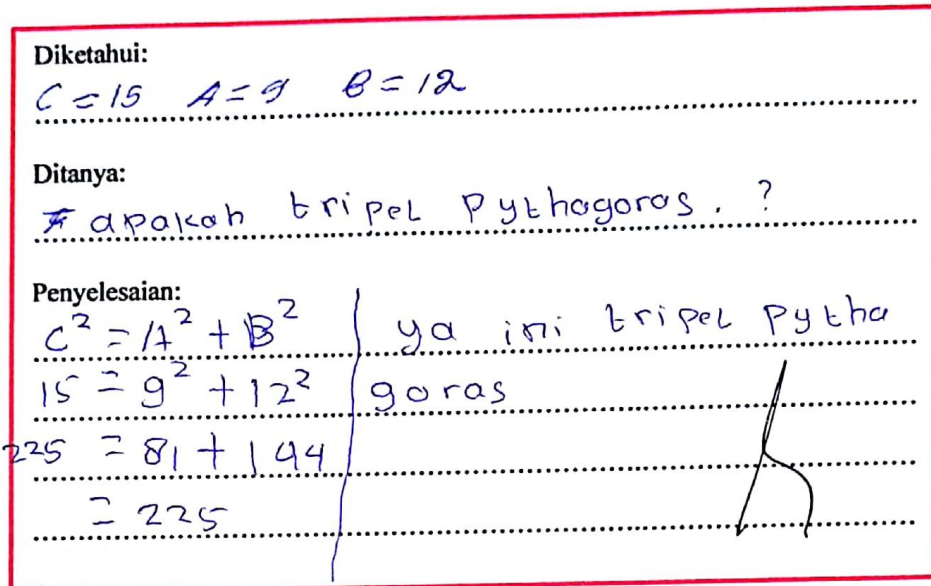 Diketahui:
C = 15 A = 9 B = 12
Ditanya:
apakah tripel Pythagoras. ?
Penyelesaian:
C² = A² + B²
15 = 9² + 12²
225 = 81 + 144
= 225
ya ini tripel Pytha
goras